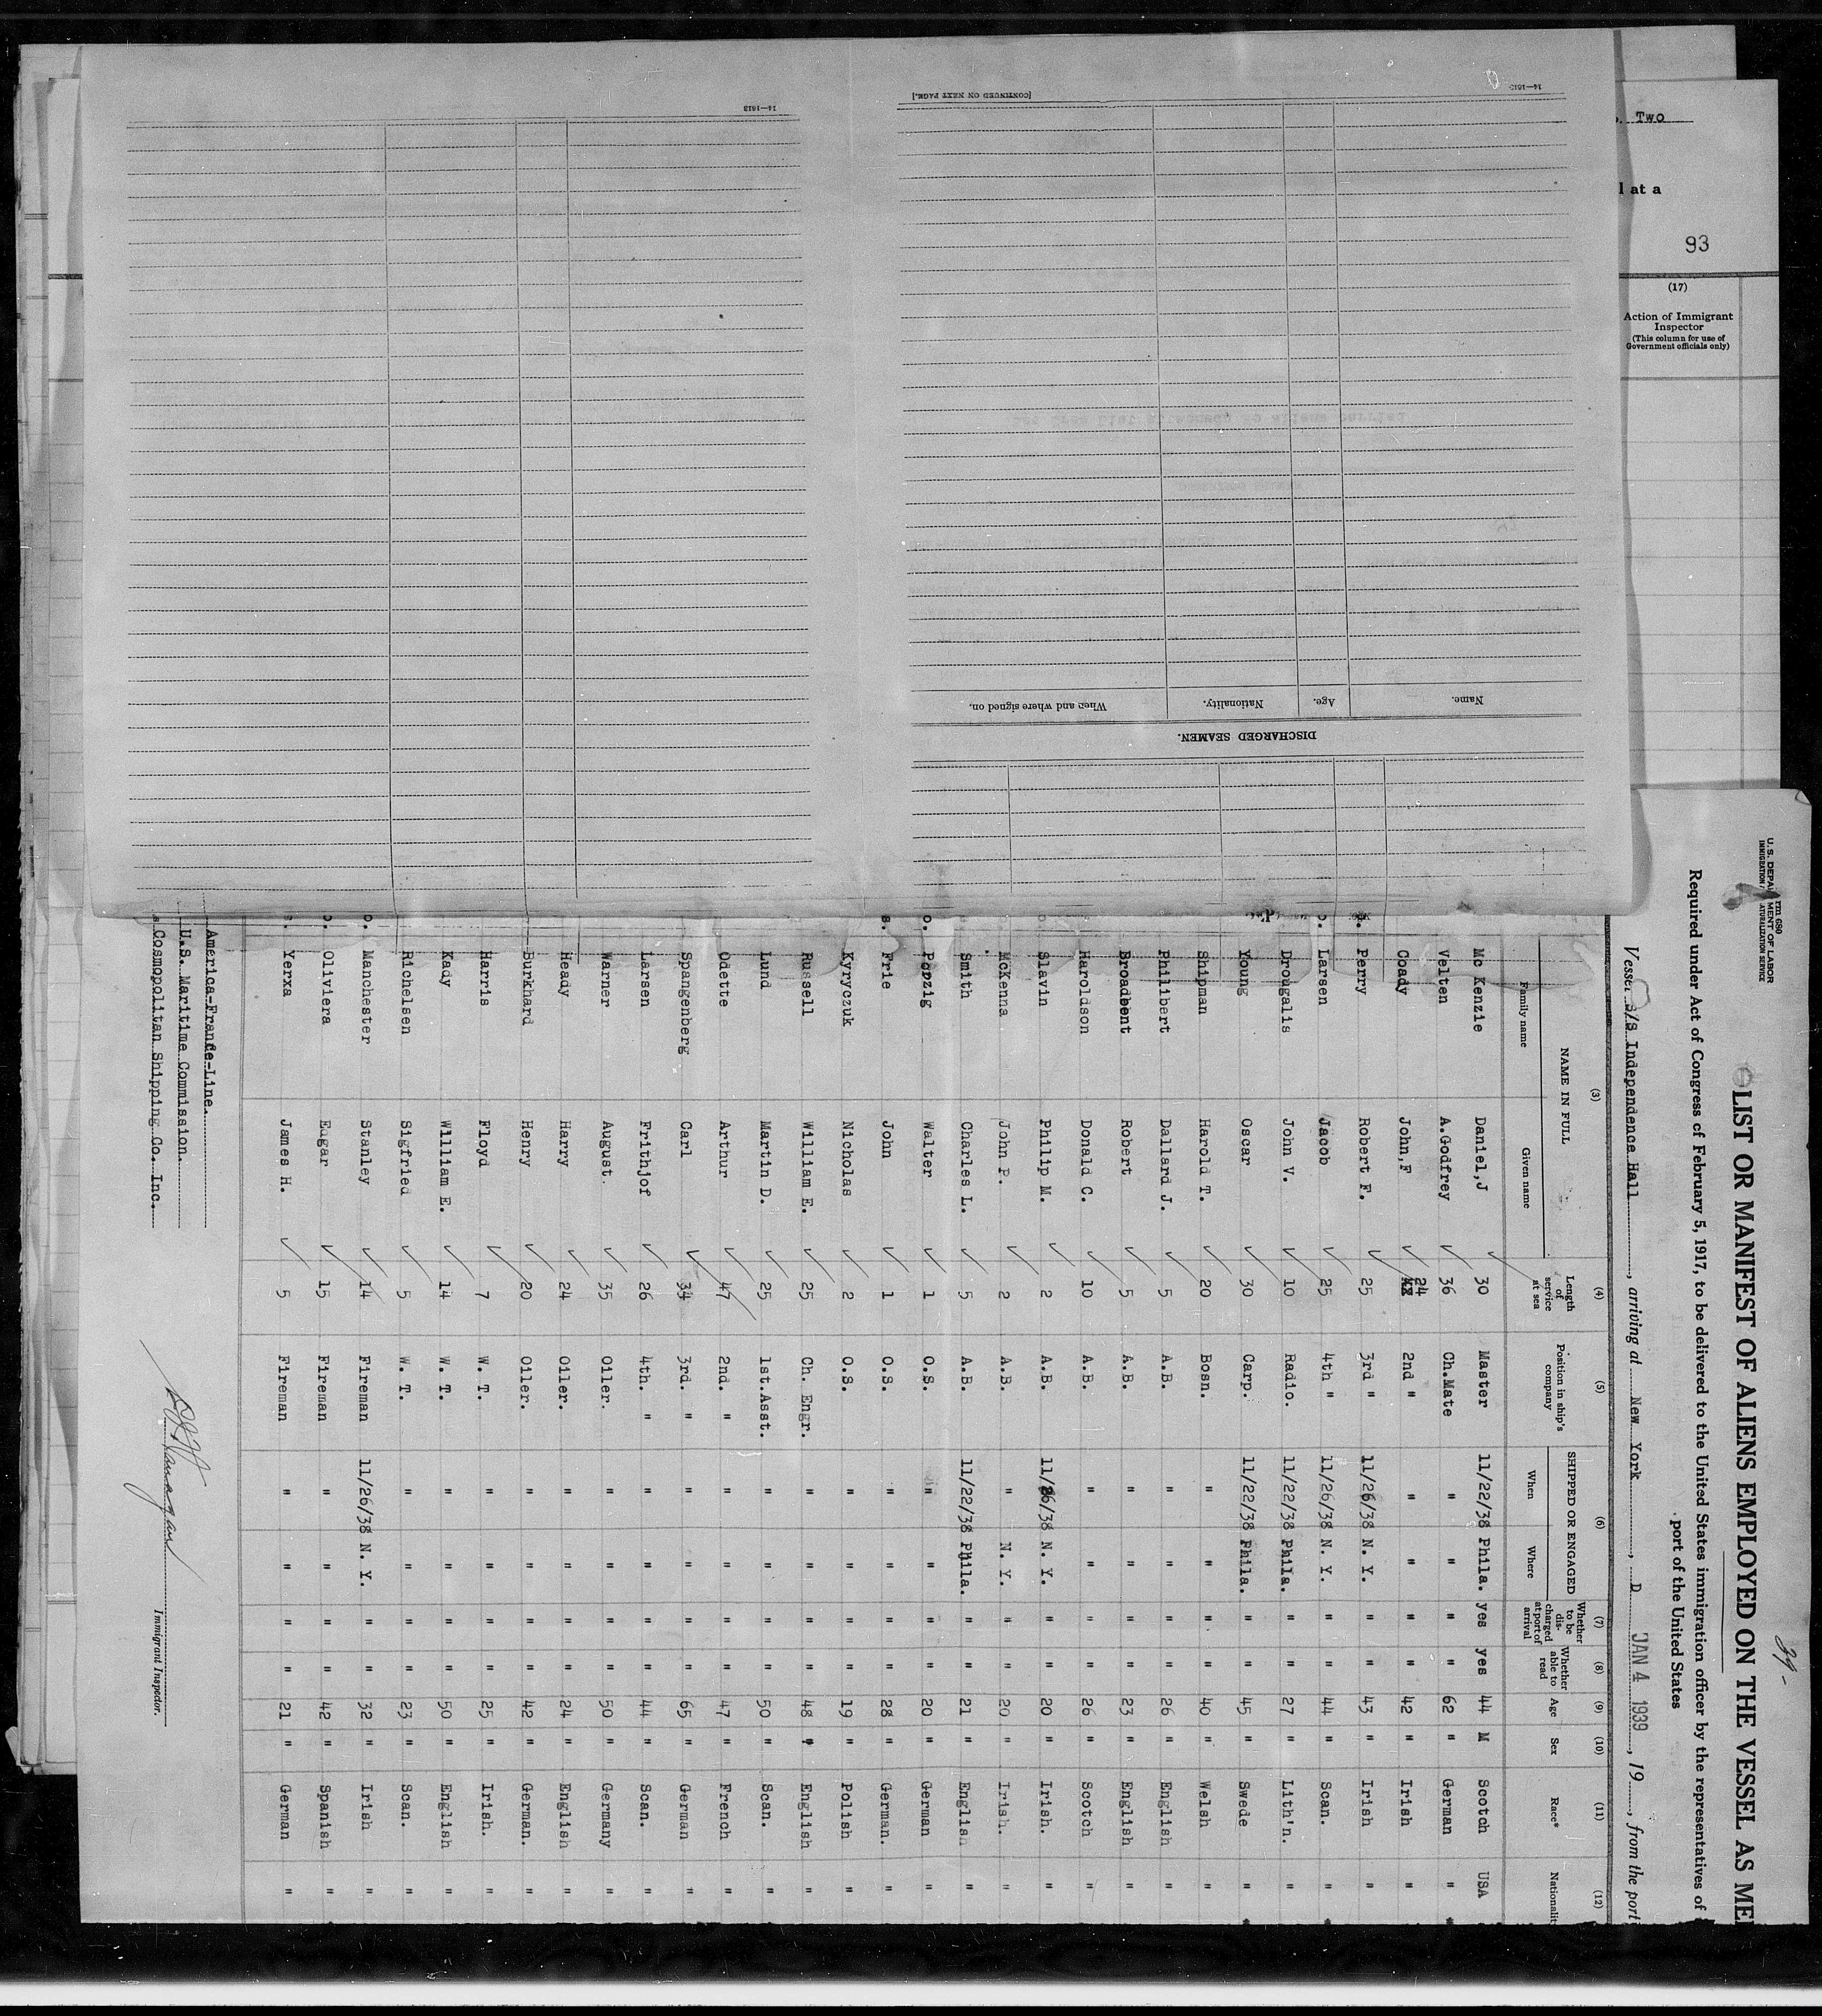 14—1613
[CONTINUED ON NEXT PAGE.]
14—1613
Name.
Age.
Nationality.
When and where signed on.
DISCHARGED SEAMEN.
Two
l at a
93
(17)
Action of Immigrant
Inspector
(This column for use of
Government officials only)
rm 680
U. S. DEPA MENT OF LABOR
IMMIGRATION ATURALIZATION SERVICE
39-
LIST OR MANIFEST OF ALIENS EMPLOYED ON THE VESSEL AS ME
Required under Act of Congress of February 5, 1917, to be delivered to the United States immigration officer by the representatives of
port of the United States
Vessel S/S Independence Hall, arriving at New York, D JAN 4 1939, 19, from the port
(3) (4) (5) (6) (7) (8) (9) (10) (11) (12)
NAME IN FULL
Family name Given name
Length of service at sea
Position in ship's company
SHIPPED OR ENGAGED
When Where
Whether to be discharged at port of arrival
Whether able to read
Age Sex Race* Nationalit
Mc Kenzie Daniel,J 30 Master 11/22/38 Phila. yes yes 44 M Scotch USA
Velten A.Godfrey 36 Ch.Mate " " " " 62 " German "
Coady John,F 24 2nd " " " " " 42 " Irish "
Perry Robert F. 25 3rd " 11/26/38 N. Y. " " 43 " Irish "
Larsen Jacob 25 4th " 11/26/38 N. Y. " " 44 " Scan. "
Drougalis John V. 10 Radio. 11/22/38 Phila. " " 27 " Lith'n. "
Young Oscar 30 Carp. 11/22/38 Phila. " " 45 " Swede "
Shipman Harold T. 20 Bosn. " " " " 40 " Welsh "
Philibert Dallard J. 5 A.B. " " " " 26 " English "
Broadbent Robert 5 A.B. " " " " 23 " English "
Haroldson Donald C. 10 A.B. " " " " 26 " Scotch "
Slavin Philip M. 2 A.B. 11/26/38 N. Y. " " 20 " Irish. "
McKenna John P. 2 A.B. " N. Y. " " 20 " Irish. "
Smith Charles L. 5 A.B. 11/22/38 Phila. " " 21 " English "
Walter 1 O.S. " " " " 20 " German "
Frie John 1 O.S. " " " " 28 " German. "
Kyryczuk Nicholas 2 O.S. " " " " 19 " Polish "
Russell William E. 25 Ch. Engr. " " " " 48 " English "
Lund Martin D. 25 1st.Asst. " " " " 50 " Scan. "
Odatte Arthur 47 2nd. " " " " " 47 " French "
Spangenberg Carl 34 3rd. " " " " " 65 " German "
Larsen Frithjof 26 4th. " " " " " 44 " Scan. "
Warner August. 35 Oiler. " " " " 50 " Germany "
Heady Harry 24 Oiler. " " " " 24 " English "
Burkhard Henry 20 Oiler. " " " " 42 " German. "
Harris Floyd 7 W. T. " " " " 25 " Irish. "
Kady William E. 14 W. T. " " " " 50 " English "
Richelsen Sigfried 5 W. T. " " " " 23 " Scan. "
Manchester Stanley 14 Fireman 11/26/38 N. Y. " " 32 " Irish "
Oliviera Edgar 15 Fireman " " " " 42 " Spanish "
Yerxa James H. 5 Fireman " " " " 21 " German "
America-France-Line.
U.S. Maritime Commission.
Cosmopolitan Shipping Co. Inc.
Immigrant Inspector.